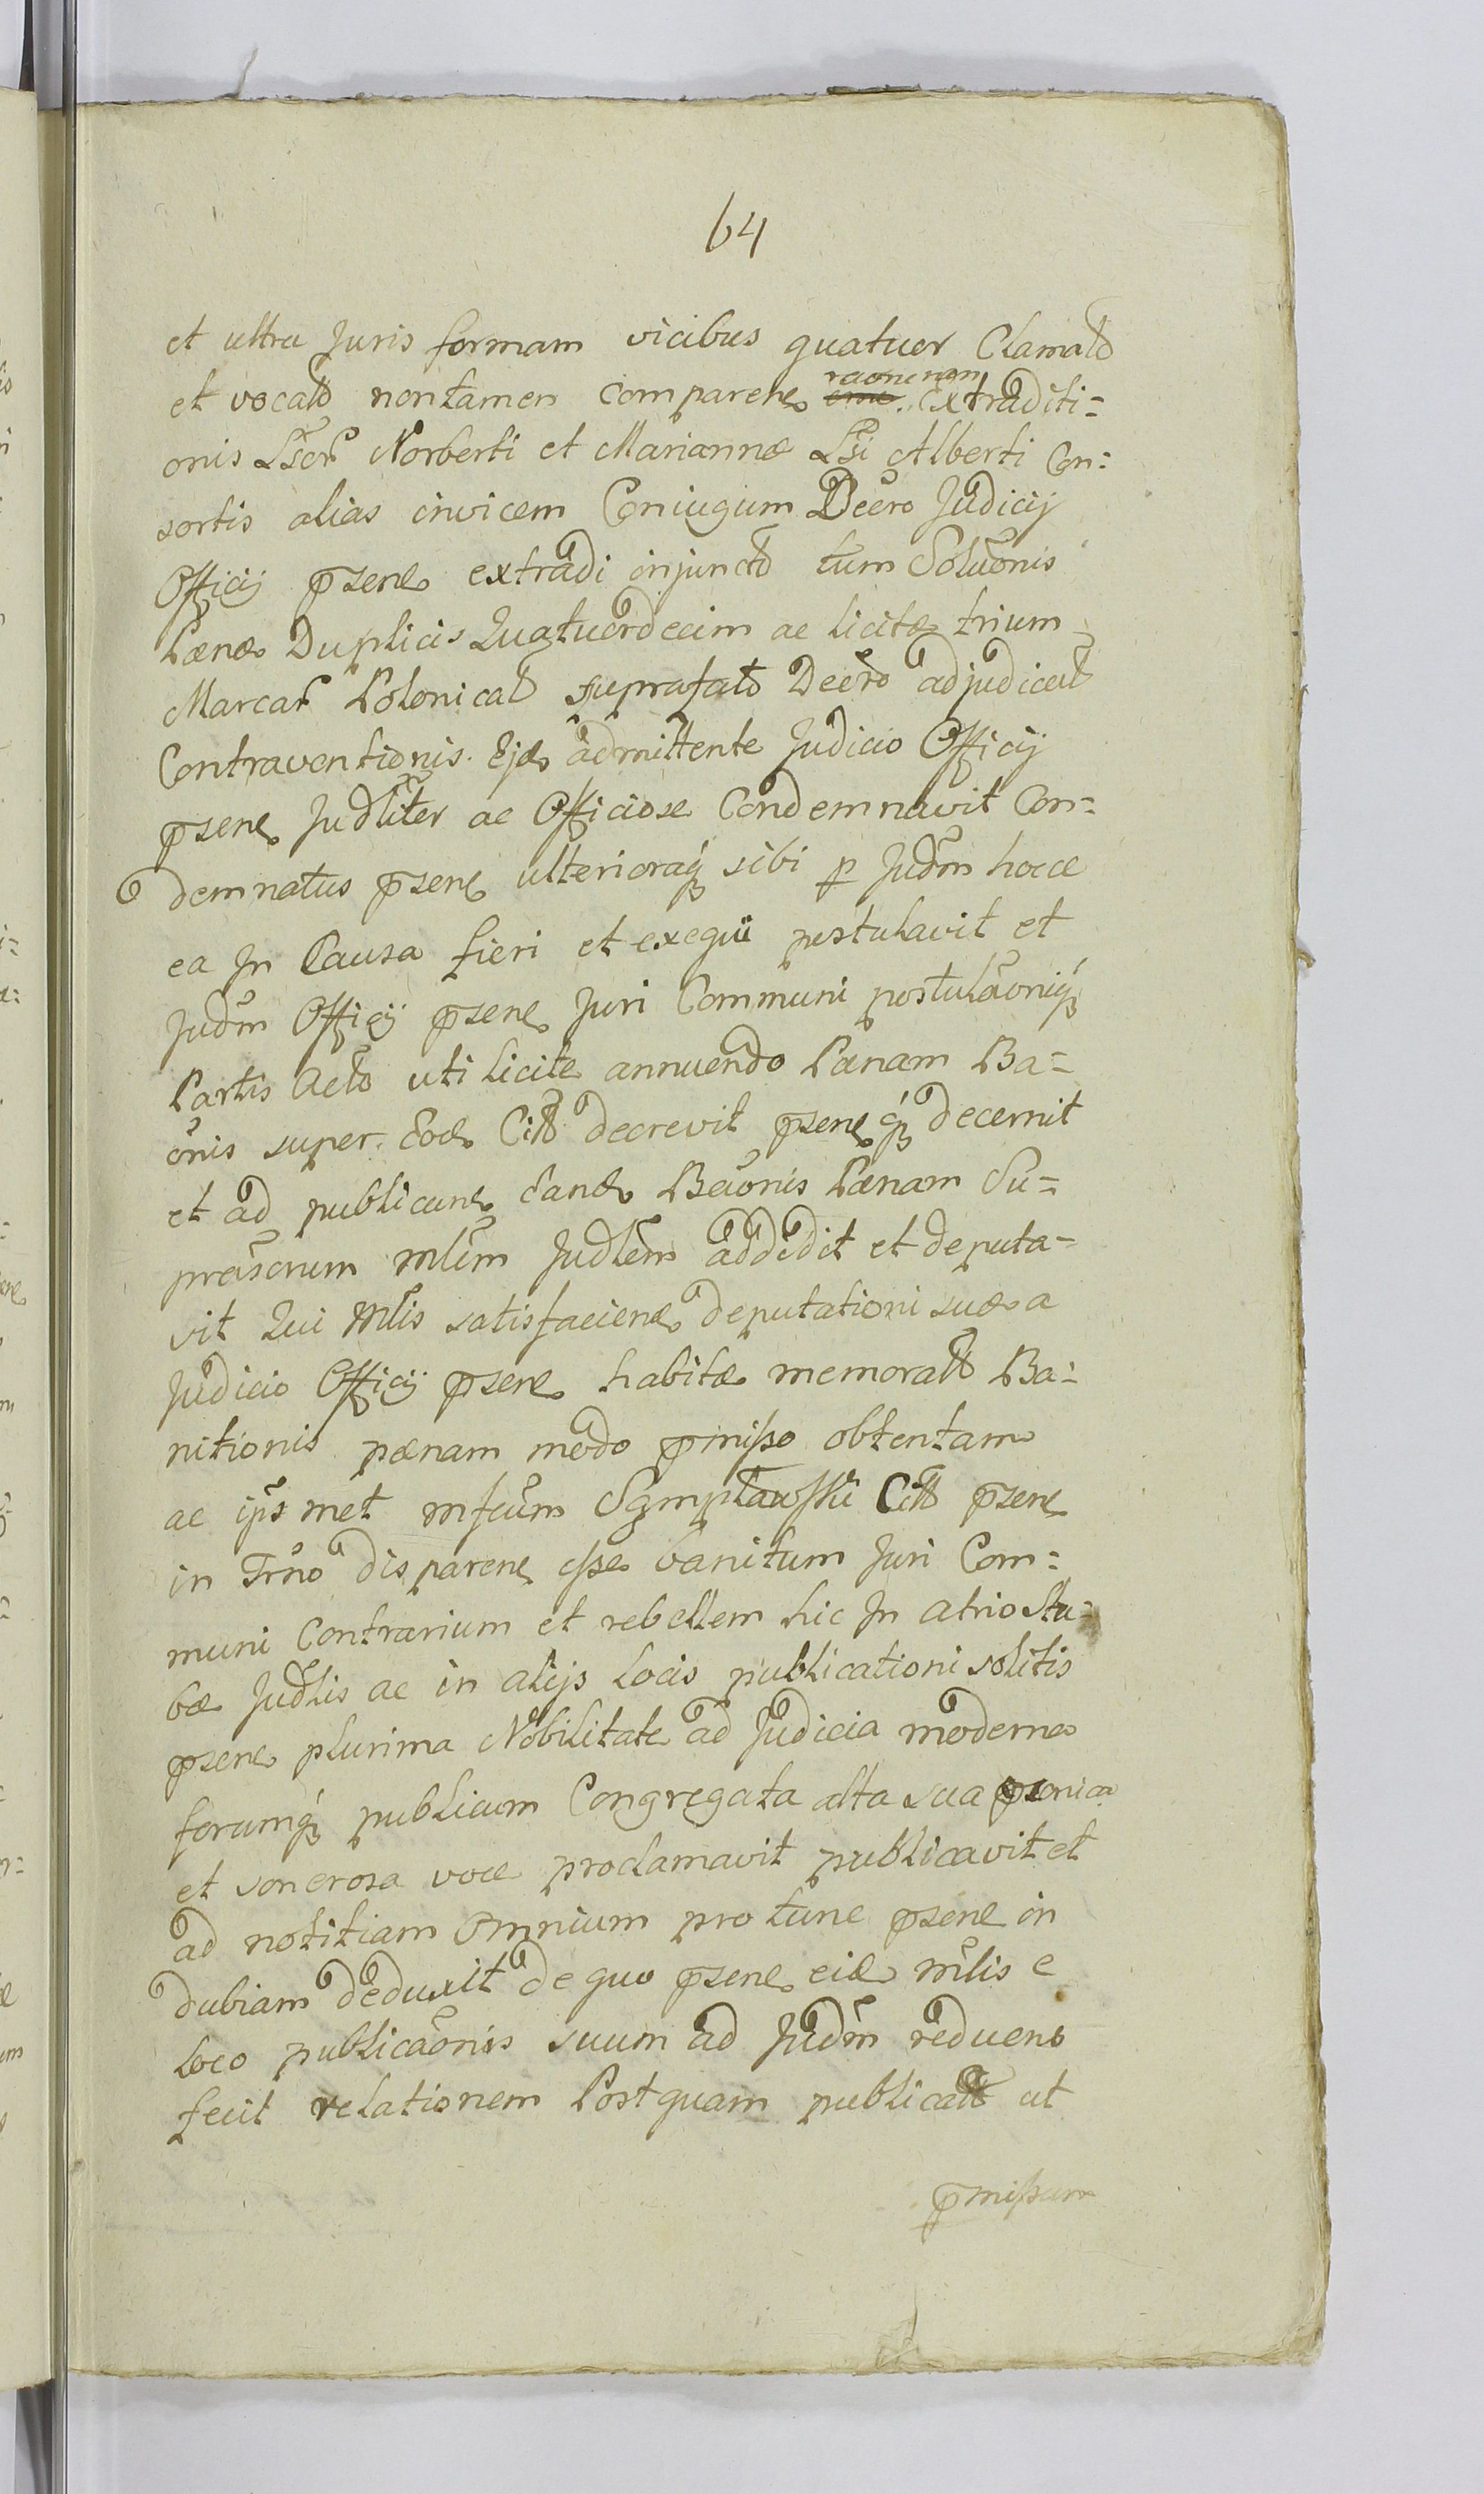 64
et ultra Juris formam vicibus quatuor Clamato
et vocato non tamen comparen raõne non Extraditi=
onis Lsor Norberti et Mariannæ Lsi Alberti Con=
sortis alias invicem Coniugum Decro Judicij
Officij psene extradi injuncto tum Soluõnis
Pænæ Duplicis Quatuordecim ac licitæ trium
Marcar Polonical suprafato Decro adjudicat
Contraventionis. Ejde admittente Judicio Officij
psene Judliter ac Officiose Condemnavit Con=
demnatus psene ulterioraq sibi p Judm hocce
ea In Causa fieri et exequi postulavit et
Judm Officij psene Juri Communi postulaõniq
Partis Acto uti licite annuendo Pænam Ba=
õnis super Eode Citto decrevit pseneq decernit
et ad publicane Eande Baõnis Pænam Su=
prascrium Mlem Judlem addidit et deputa=
vit Qui Mlis satisfaciene deputationi suæ a
Judicio Officij psene habitæ memorato Ba=
nitionis pænam modo pmisso obtentam
ac ips met Mfcum Szmptawski Citto psene
in Trno disparene esse banitum Juri Com=
muni Contrarium et rebellem hic In atrio Stu=
bæ Judlis ac in alijs Locis publicationi solitis
psene plurima Nobilitate ad Judicia moderna
forumq publicum Congregata alta sua psonica
et sonorosa voce proclamavit publicavit et
ad notitiam Omnium pro tunc psene in
dubiam deduxit de quo psene eide Mlis e
Loco publicaõnis suum ad Judm reduens
fecit relationem Postquam publicatto ut
pmissum